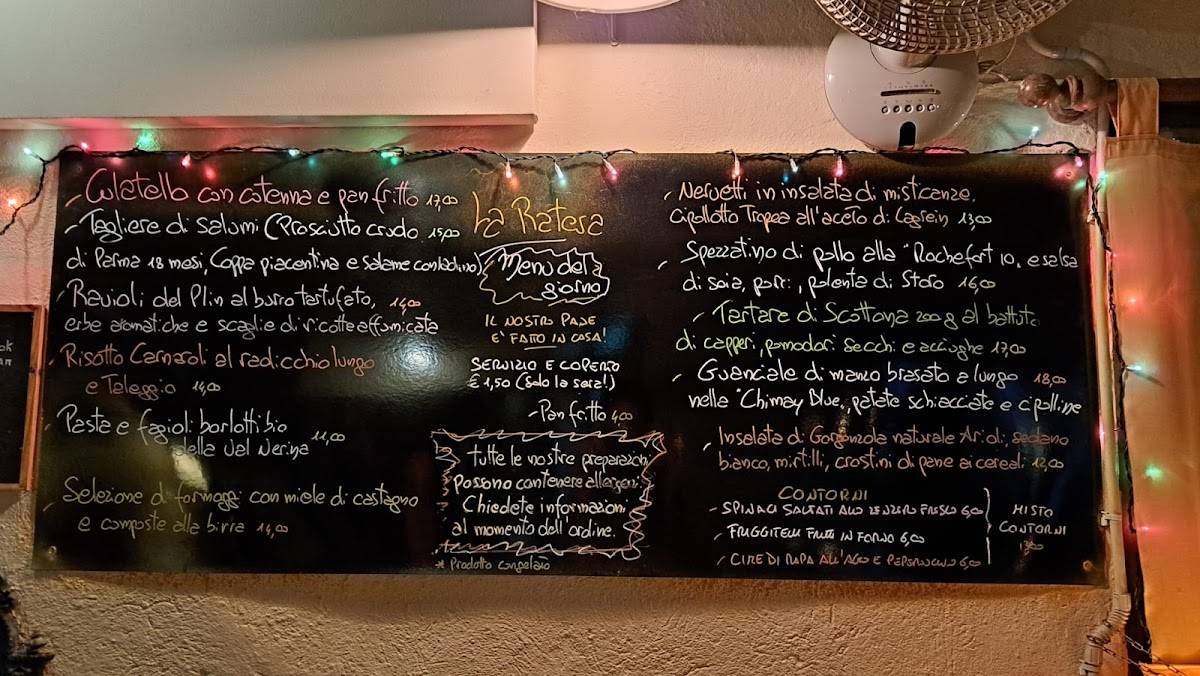 Culatello con cotenna e pan fritto 17,00
Tagliere di salumi (Prosciutto crudo 15,00
di Parma 18 mesi, Coppa piacentina e salame contadino)
Ravioli del Plin al burro tartufato, 14,00
erbe aromatiche e scaglie di ricotta affumicata
Risotto Carnaroli al radicchio lungo
e Taleggio 14,00
Pasta e fagioli borlotti bio 11,00
della Val Nerina
Selezione di formaggi con miele di castagno
e composte alla birra 14,00
La Ratera
Menu del
giorno
IL NOSTRO PANE
E' FATTO IN CASA!
SERVIZIO E COPERTO
€ 1,50 (Solo la sera!)
Pan fritto 4,00
Tutte le nostre preparazioni
Possono contenere allergeni.
Chiedete informazioni
al momento dell'ordine.
* Prodotto congelato
Nervetti in insalata di misticanze,
cipollotto Tropea all'aceto di Lagrein 13,00
Spezzatino di pollo alla "Rochefort 10" e salsa
di soia, porri, polenta di Storo 16,00
Tartare di Scottona 200 g al battuto
di capperi, pomodori secchi e acciughe 17,00
Guanciale di manzo brasato a lungo 18,00
nella "Chimay Blue", patate schiacciate e cipolline
Insalata di Gorgonzola naturale Arioli, sedano
bianco, mirtilli, crostini di pane ai cereali 12,00
CONTORNI
SPINACI SALTATI ALLO ZENZERO FRESCO 6,00
FRIGGITELLI FRITTI IN FORNO 6,00
CIME DI RAPA ALL'AGLIO E PEPERONCINO 6,00
MISTO
CONTORNI